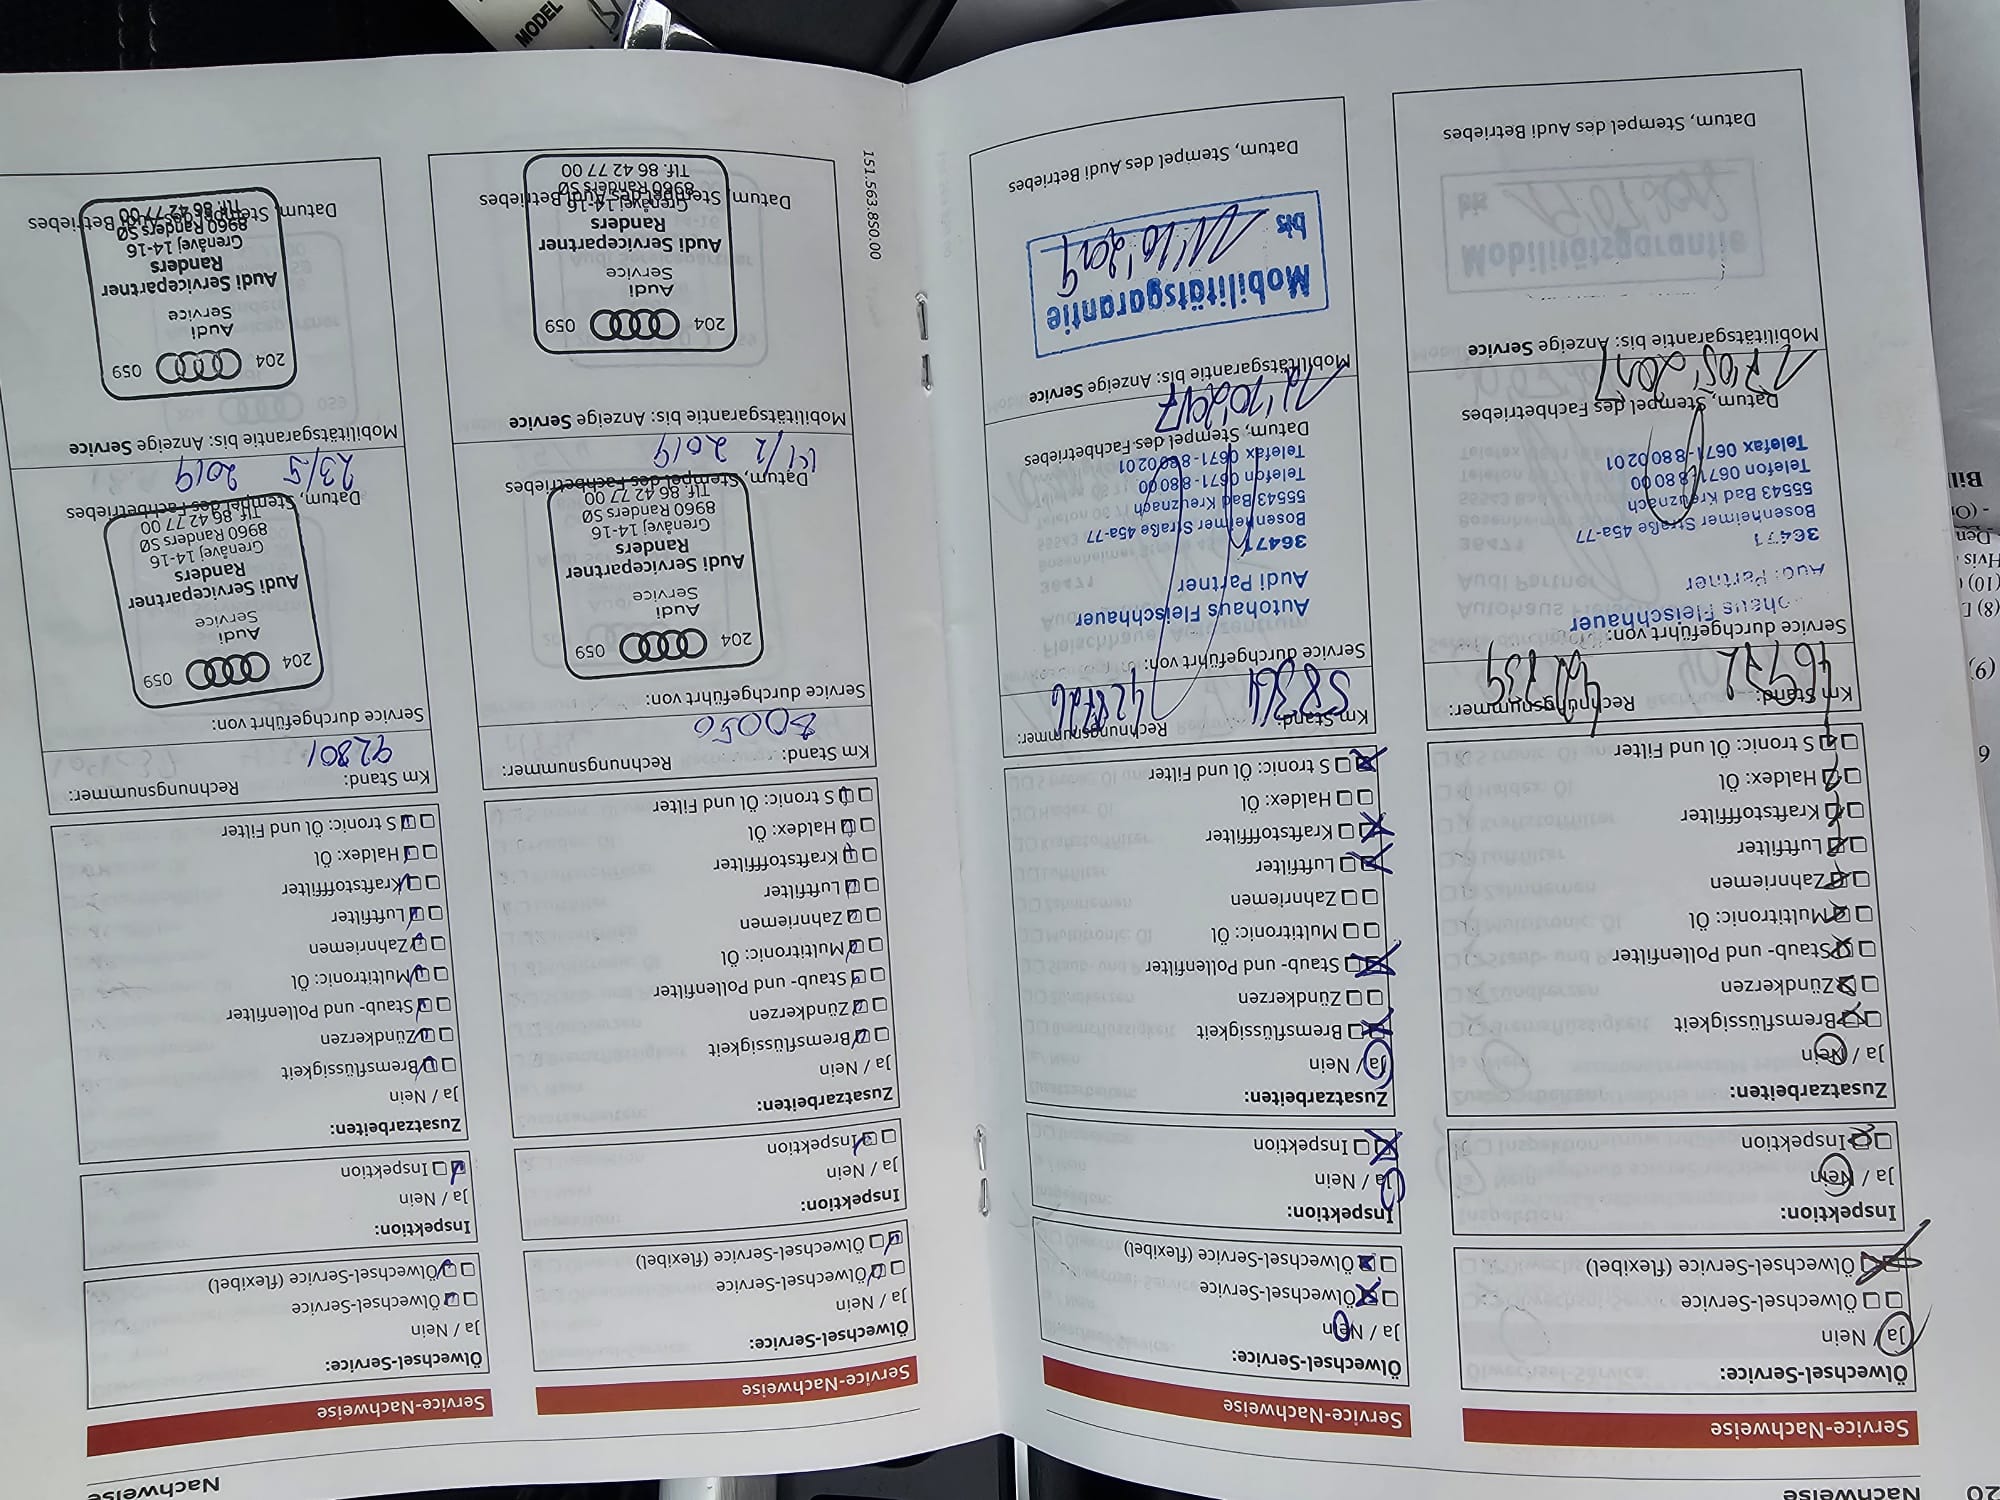 20
Nachweise
Service-Nachweise
Ölwechsel-Service:
Ja / Nein
Ölwechsel-Service
Ölwechsel-Service (flexibel)
Inspektion:
Ja / Nein
Inspektion
Zusatzarbeiten:
Ja / Nein
Bremsflüssigkeit
Zündkerzen
Staub- und Pollenfilter
Multitronic: Öl
Zahnriemen
Luftfilter
Kraftstofffilter
Haldex: Öl
S tronic: Öl und Filter
Km Stand: Rechnungsnummer:
Service durchgeführt von:
Fleischhauer
Audi Partner
36471
Bosenheimer Straße 45a-77
55543 Bad Kreuznach
Telefon 0671-88000
Telefax 0671-8800201
Datum, Stempel des Fachbetriebes
17.05.2017
Mobilitätsgarantie bis: Anzeige Service
Datum, Stempel des Audi Betriebes
Service-Nachweise
Ölwechsel-Service:
Ja / Nein
Ölwechsel-Service
Ölwechsel-Service (flexibel)
Inspektion:
Ja / Nein
Inspektion
Zusatzarbeiten:
Ja / Nein
Bremsflüssigkeit
Zündkerzen
Staub- und Pollenfilter
Multitronic: Öl
Zahnriemen
Luftfilter
Kraftstofffilter
Haldex: Öl
S tronic: Öl und Filter
Km Stand: Rechnungsnummer:
Service durchgeführt von:
Autohaus Fleischhauer
Audi Partner
36471
Bosenheimer Straße 45a-77
55543 Bad Kreuznach
Telefon 0671-88000
Telefax 0671-8800201
Datum, Stempel des Fachbetriebes
Mobilitätsgarantie bis: Anzeige Service
Mobilitätsgarantie
bis 11.10.2019
Datum, Stempel des Audi Betriebes
151.563.850.00
Nachweise
Service-Nachweise
Ölwechsel-Service:
Ja / Nein
Ölwechsel-Service
Ölwechsel-Service (flexibel)
Inspektion:
Ja / Nein
Inspektion
Zusatzarbeiten:
Ja / Nein
Bremsflüssigkeit
Zündkerzen
Staub- und Pollenfilter
Multitronic: Öl
Zahnriemen
Luftfilter
Kraftstofffilter
Haldex: Öl
S tronic: Öl und Filter
Km Stand: Rechnungsnummer:
80050
Service durchgeführt von:
204 059
Audi
Service
Audi Servicepartner
Randers
Grenåvej 14-16
8960 Randers SØ
Tlf. 86 42 77 00
Datum, Stempel des Fachbetriebes
14/2 2019
Mobilitätsgarantie bis: Anzeige Service
204 059
Audi
Service
Audi Servicepartner
Randers
Grenåvej 14-16
8960 Randers SØ
Tlf. 86 42 77 00
Datum, Stempel des Audi Betriebes
Service-Nachweise
Ölwechsel-Service:
Ja / Nein
Ölwechsel-Service
Ölwechsel-Service (flexibel)
Inspektion:
Ja / Nein
Inspektion
Zusatzarbeiten:
Ja / Nein
Bremsflüssigkeit
Zündkerzen
Staub- und Pollenfilter
Multitronic: Öl
Zahnriemen
Luftfilter
Kraftstofffilter
Haldex: Öl
S tronic: Öl und Filter
Km Stand: Rechnungsnummer:
92801
Service durchgeführt von:
204 059
Audi
Service
Audi Servicepartner
Randers
Grenåvej 14-16
8960 Randers SØ
Tlf. 86 42 77 00
Datum, Stempel des Fachbetriebes
23/5 2019
Mobilitätsgarantie bis: Anzeige Service
204 059
Audi
Service
Audi Servicepartner
Randers
Grenåvej 14-16
8960 Randers SØ
Tlf. 86 42 77 00
Datum, Stempel des Audi Betriebes
MODEL
6
(9)
(8)
(10)
Hvis
Den